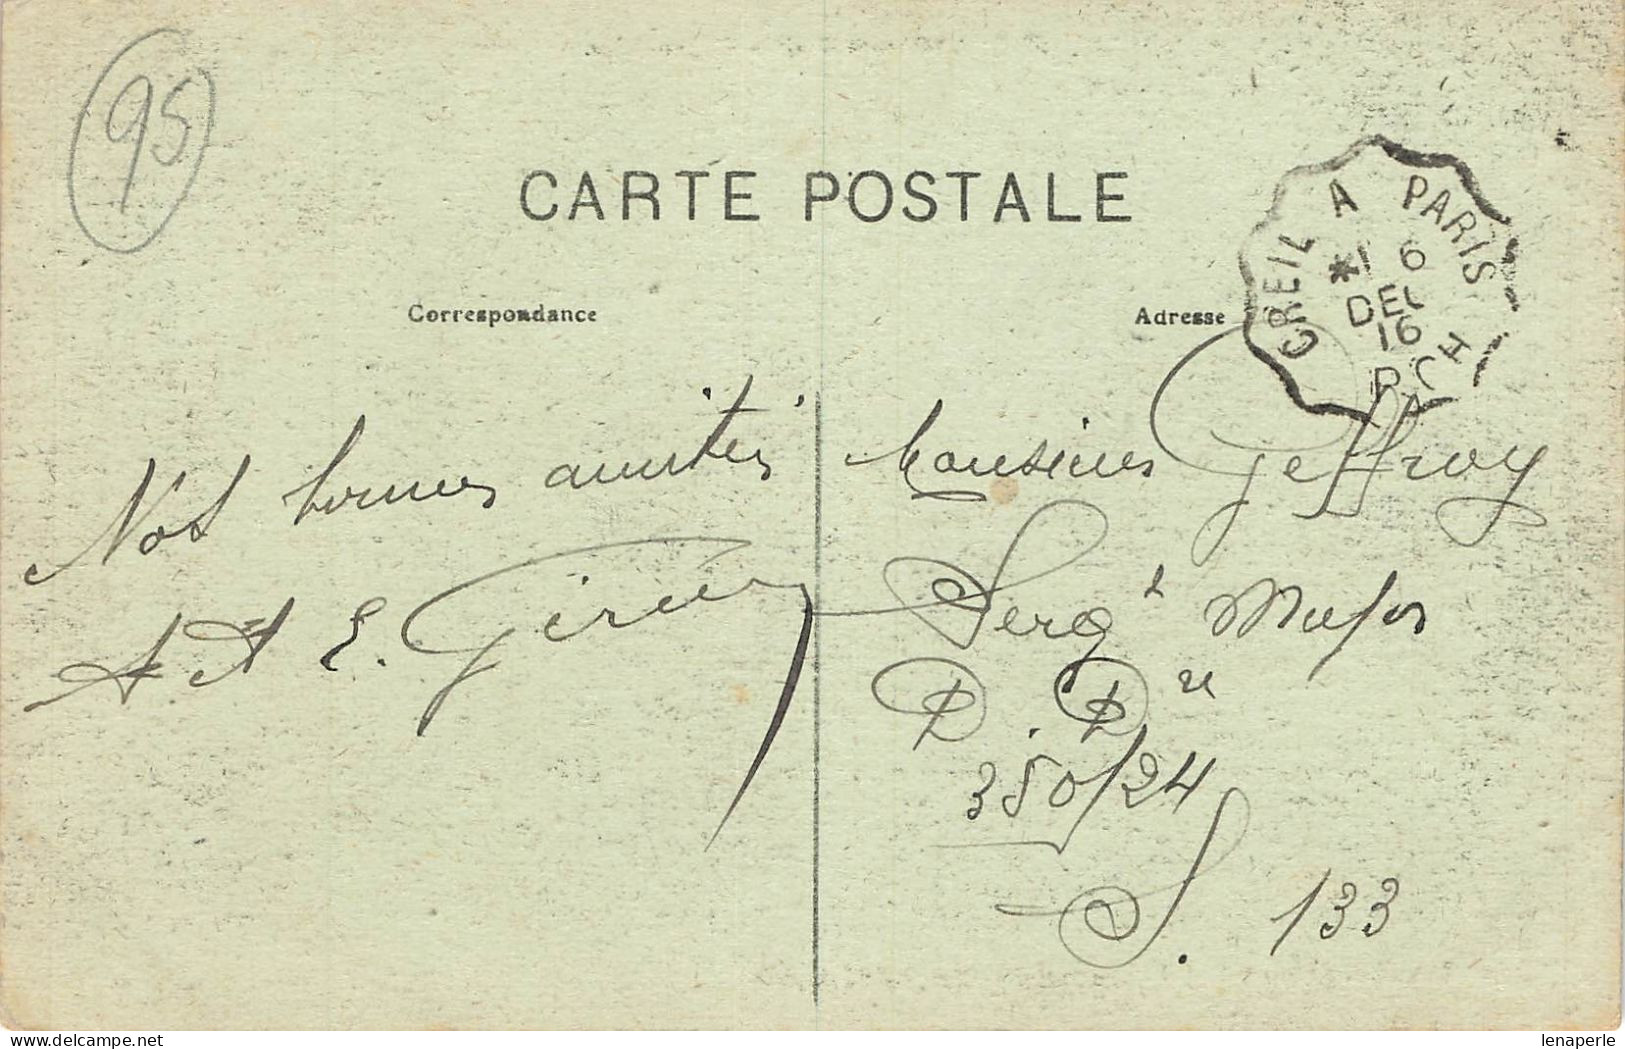 95
CARTE POSTALE
CREIL A PARIS
*1 6
DEC
16
Correspondance
Adresse
Nos bonnes amitiés
A et A E.
Monsieur Geffroy
Serg t Major
D. D re
350/24
S. 133
delcampe.net
lenaperle